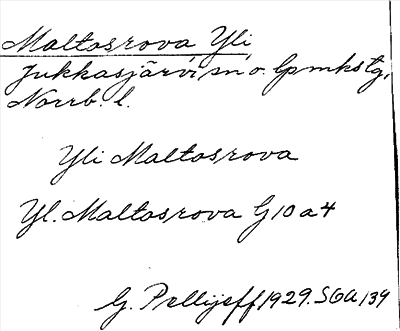 Maltosrova Yli,
Jukkasjärvi sn o. lpmkstg,
Norrb. l.
Yli Maltosrova
Yl. Maltosrova G10a4
G. Pellijeff 1929. SOA 139